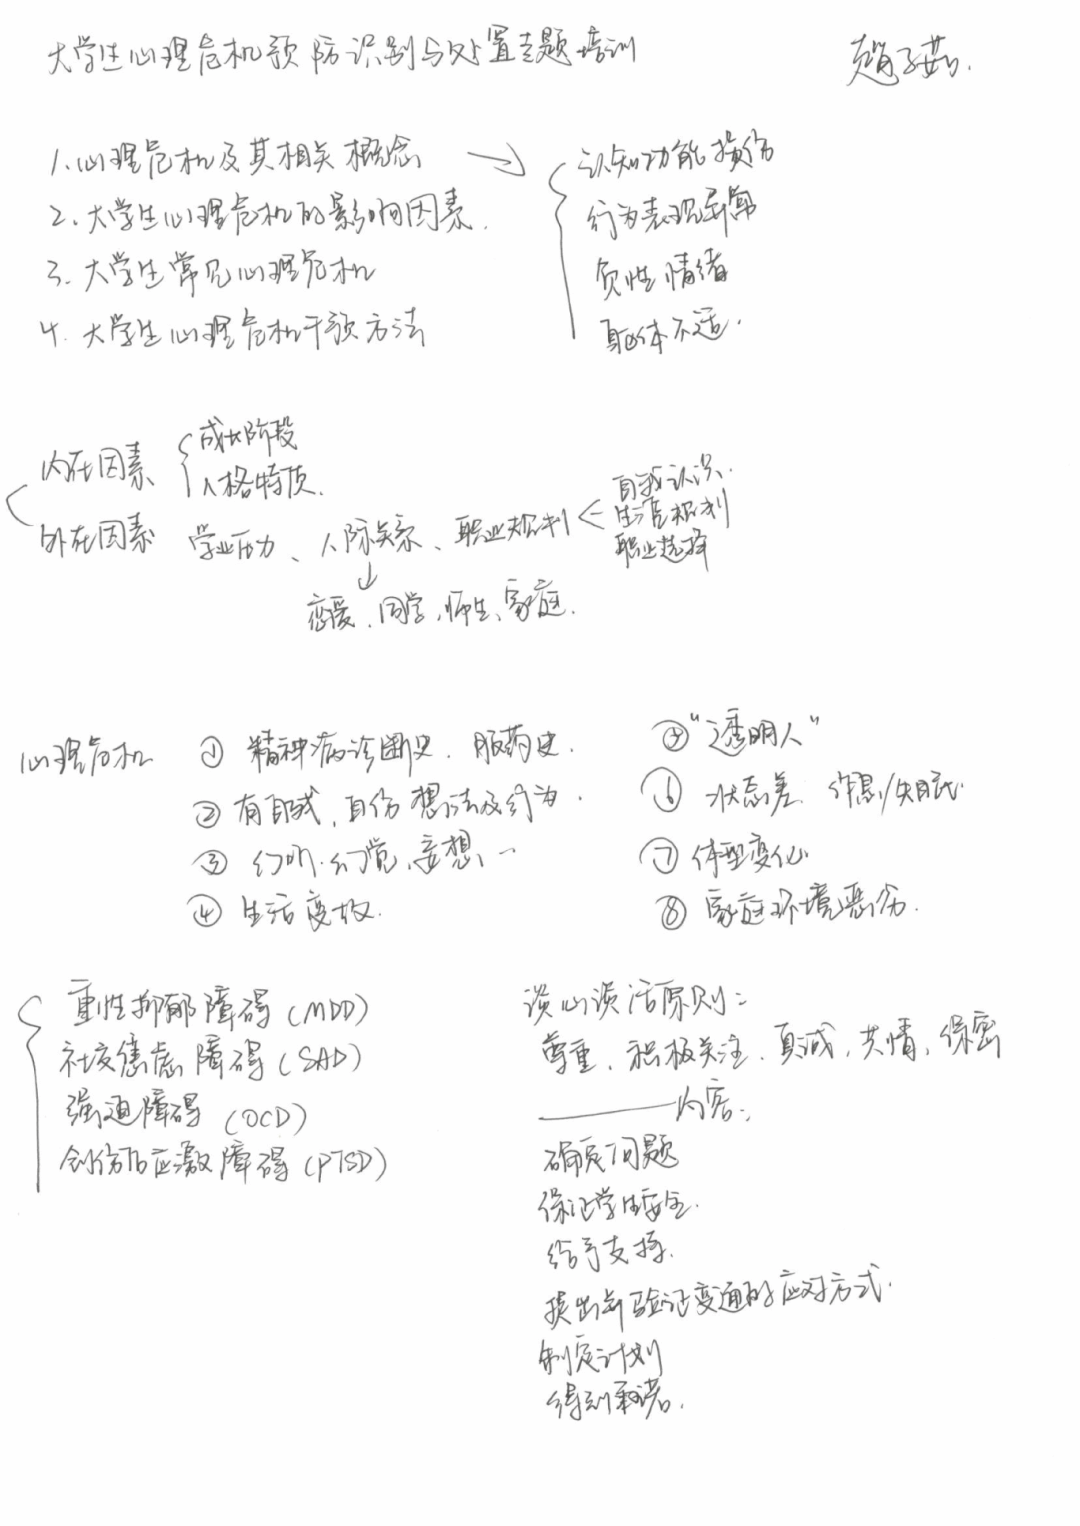 大学生心理危机预防识别与处置专题培训
赵子茹.
1.心理危机及其相关概念
2.大学生心理危机的影响因素.
3.大学生常见心理危机
4.大学生心理危机干预方法
认知功能损伤
行为表现异常
负性情绪
躯体不适.
内在因素
成长阶段
人格特质.
外在因素 学业压力、人际关系、职业规划
自我认识.
生涯规划
职业选择
恋爱、同学,师生、家庭.
心理危机
① 精神病诊断史.服药史.
② 有自残,自伤想法及行为.
③ 幻听.幻觉,妄想、
④ 生活变故.
⑤ "透明人"
⑥ 状态差 作息/失眠.
⑦ 体型变化
⑧ 家庭环境恶劣.
重性抑郁障碍(MDD)
社交焦虑障碍(SAD)
强迫障碍(OCD)
创伤后应激障碍(PTSD)
谈心谈话原则:
尊重,积极关注,真诚,共情,保密
内容:
确定问题
保证学生安全.
给予支持.
提出并验证变通的应对方式.
制定计划
得到承诺.